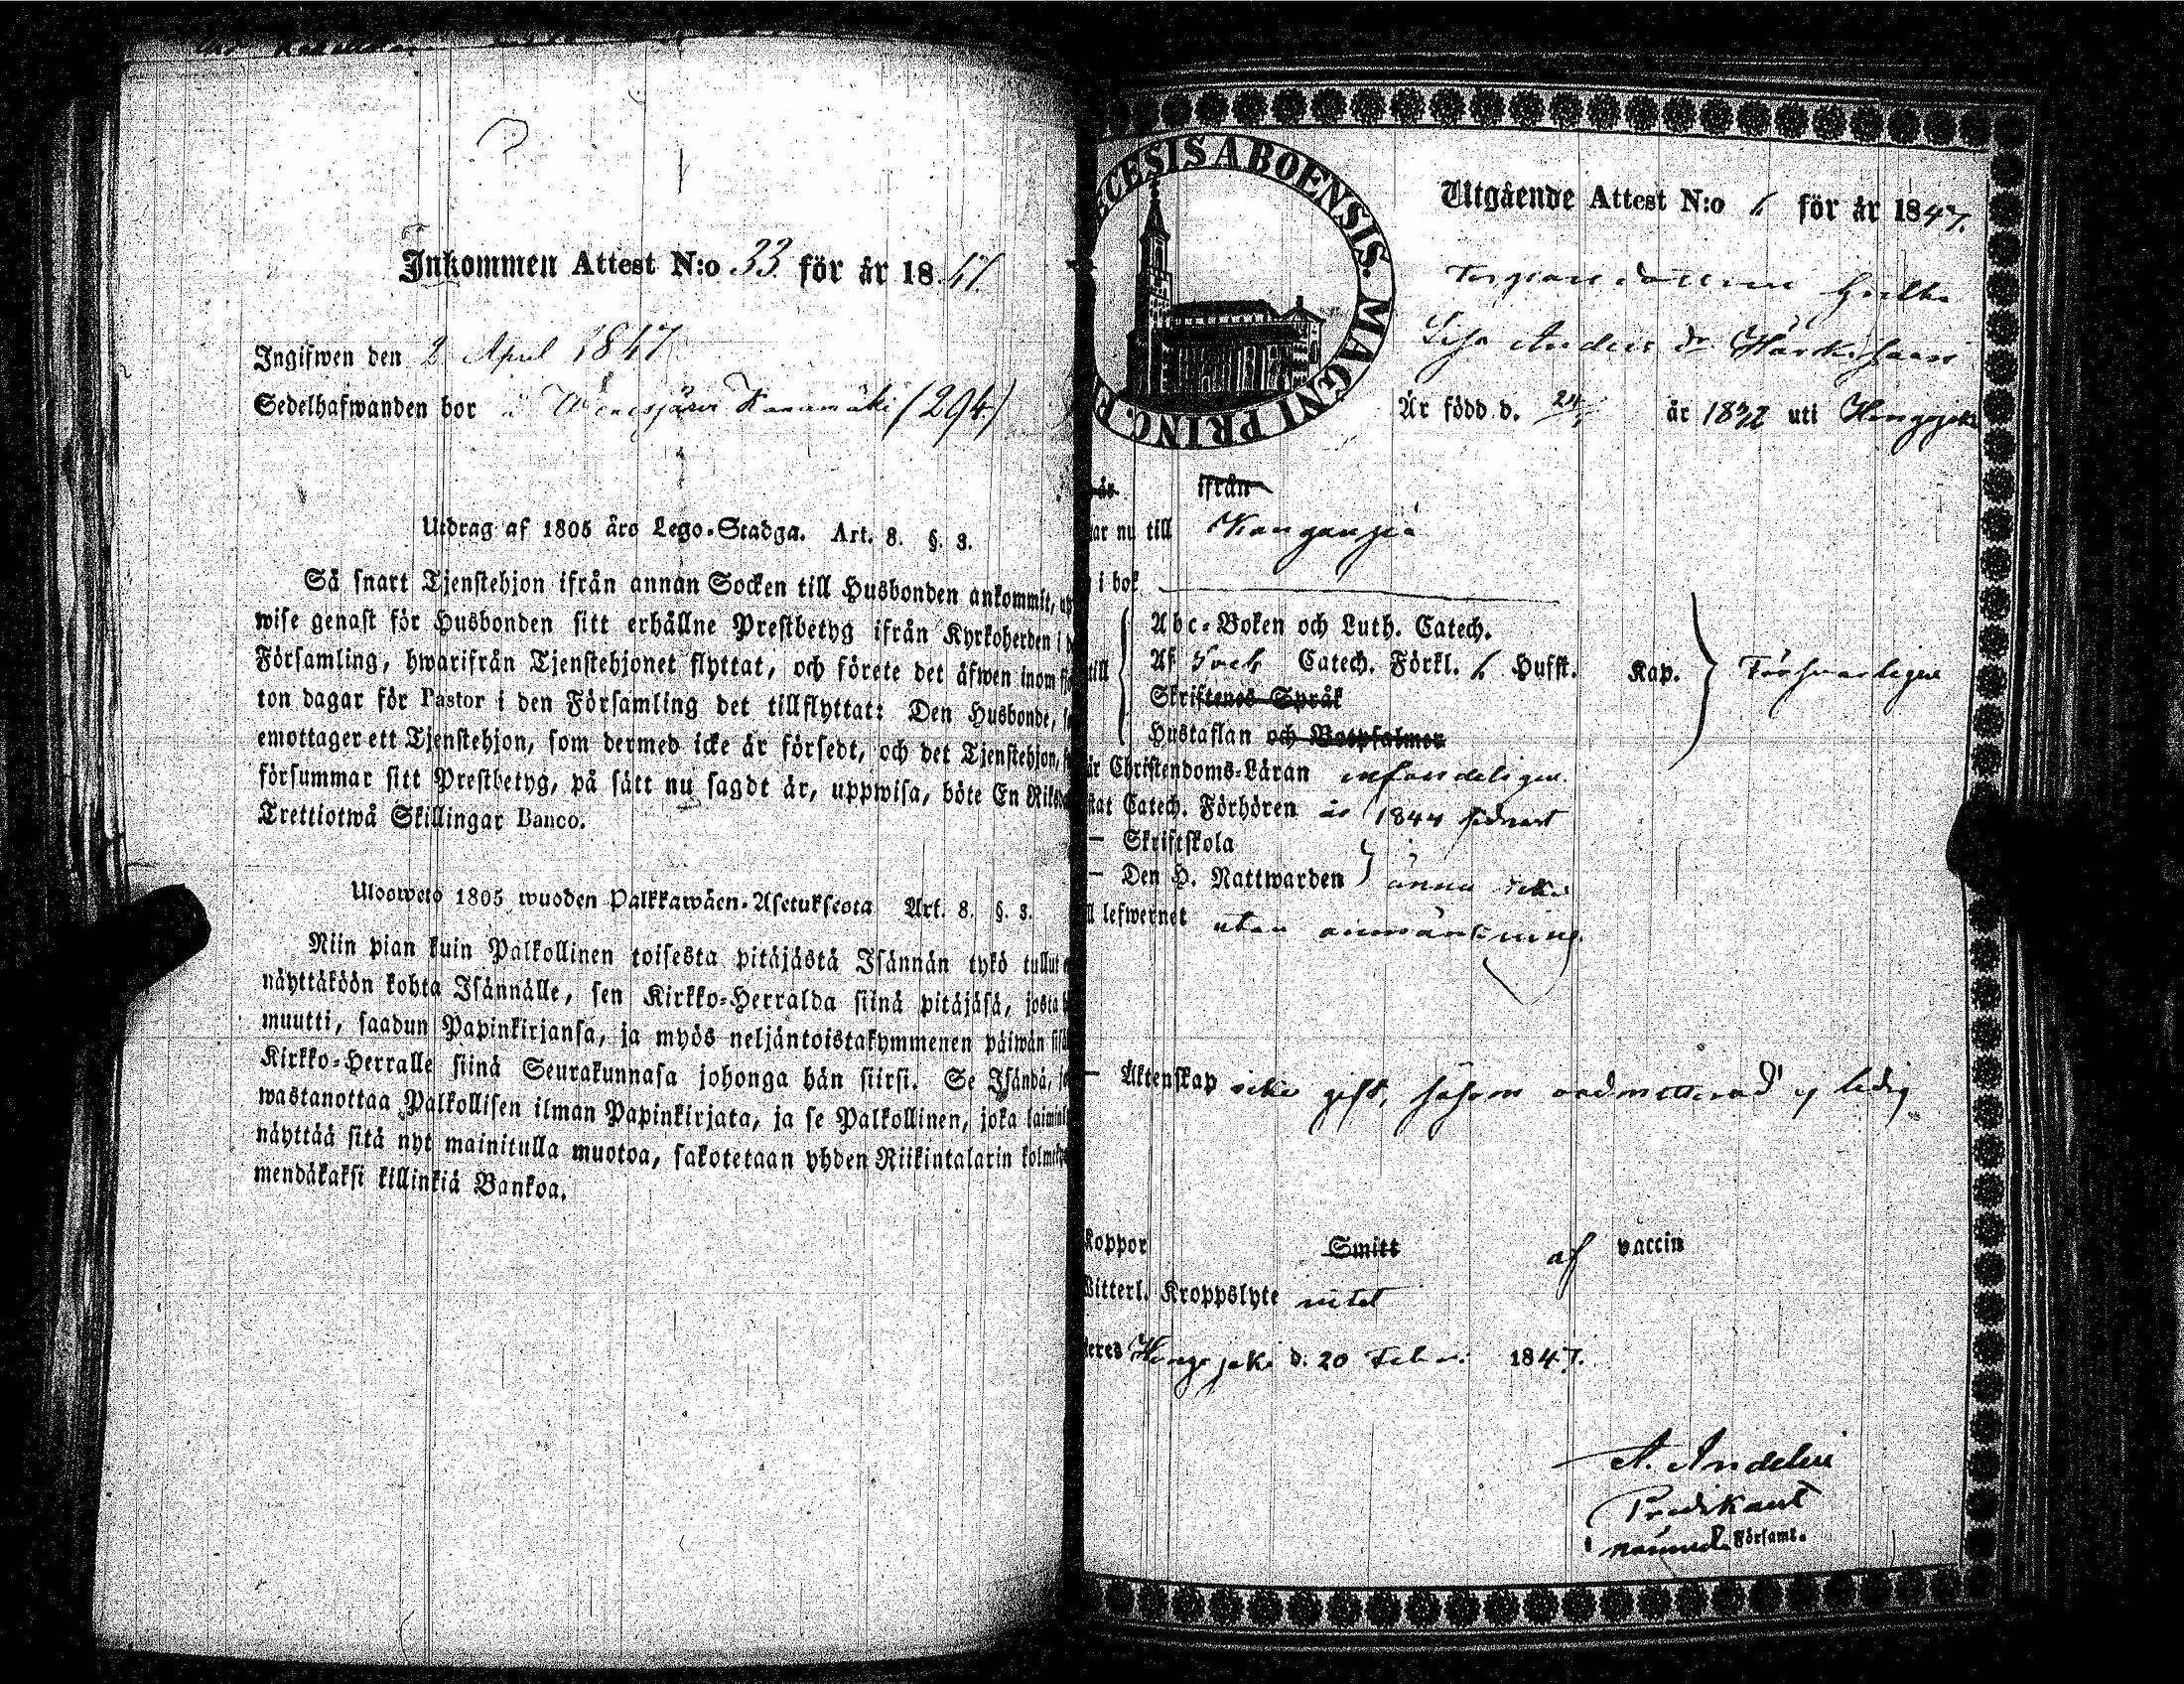 Inkommen Attest N:o 33 för år 1847.
Ingifwen den 2 April 1847
Sedelhafwanden bor i Kanamäki (294)
Utdrag af 1805 års Lego-Stadga. Art. 8. §. 3.
Så snart Tjenstehjon ifrån annan Socken till Husbonden ankommit, up
wise genast för Husbonden sitt erhållne Prestbetyg ifrån Kyrkoherden i d
Församling, hwarifrån Tjenstehjonet flyttat, och förete det äfwen inom fj
ton dagar för Pastor i den Församling det tillflyttat: Den Husbonde, s
emottager ett Tjenstehjon, som dermed icke är försedt, och det Tjenstehjon,
försummar sitt Prestbetyg, på sätt nu sagdt är, uppwisa, böte En Riksd
Trettiotwå Skillingar Banco.
Ulosweto 1805 wuoden Palkkawäen-Asetuksesta Art. 8. §. 3.
Niin pian kuin Palkollinen toisesta pitäjästä Isännän tykö tullut
näyttäköön kohta Isännälle, sen Kirkko-Herralda siinä pitäjäsä, josta h
muutti, saadun Papinkirjansa, ja myös neljäntoistakymmenen päiwän sisä
Kirkko-Herralle siinä Seurakunnasa johonga hän siirsi. Se Isändä, jo
wastanottaa Palkollisen ilman Papinkirjata, ja se Palkollinen, joka laimin
näyttää sitä nyt mainitulla muotoa, sakotetaan yhden Riikintalarin kolmek
mendäkaksi killinkiä Bankoa.
CESIS ABOENSIS. MAGNI PRINC. F
Utgående Attest N:o för år 1847.
Lisa Anders dr
Är född d. 24 år 1832 uti Hongojoki
år ifrån
ar nu till Kangasniä
i bok
till
Abc-Boken och Luth. Catech.
Af Sveb Catech. Förkl. Husst. Kap. Försvarligen
Skriftenes Språk
Hustaflan och Botpsalmer
är Christendoms-Läran enfaldeligen.
stat Catech. Förhören år 1844 sednast
— Skriftskola
— Den H. Nattwarden ännu icke
ll lefwernet utan anmärkning.
— Äktenskap icke gift, såsom oadmitterad ej ledig
Koppor Smitt af vaccin
Witterl. Kroppslyte intet
eres Hongojoki d. 20 Febr. 1847.
A. Andelin
Predikant
nämnde Församl.